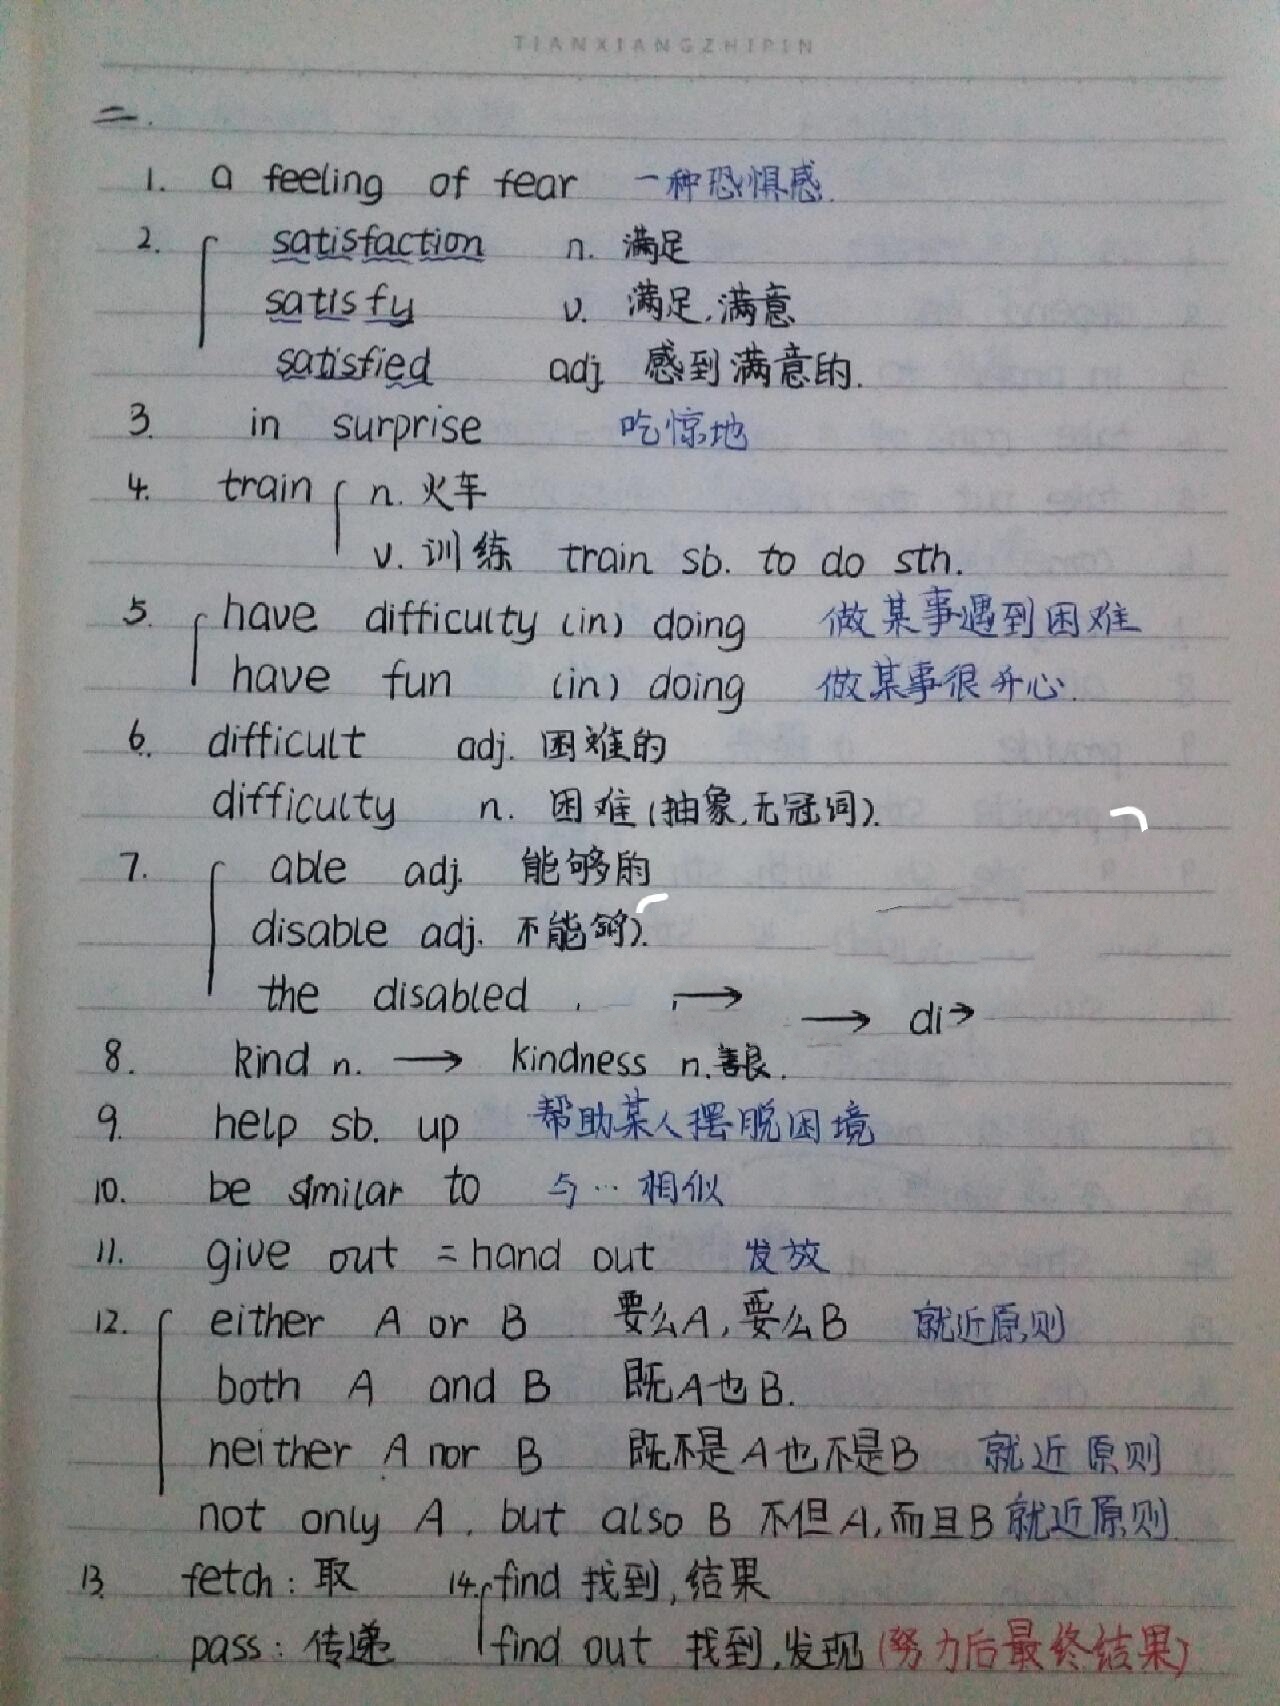 TIANXIANGZHIPIN
二.
1. a feeling of fear 一种恐惧感.
2. satisfaction n. 满足
satisfy v. 满足,满意
satisfied adj. 感到满意的.
3. in surprise 吃惊地
4. train n. 火车
v. 训练 train sb. to do sth.
5. have difficulty (in) doing 做某事遇到困难
have fun (in) doing 做某事很开心.
6. difficult adj. 困难的
difficulty n. 困难(抽象,无冠词).
7. able adj. 能够的
disable adj. 不能够).
the disabled . → → di→
8. kind n. → kindness n.善良.
9. help sb. up 帮助某人摆脱困境
10. be similar to 与…相似
11. give out = hand out 发放
12. either A or B 要么A,要么B 就近原则
both A and B 既A也B.
neither A nor B 既不是A也不是B 就近原则
not only A, but also B 不但A,而且B 就近原则.
13. fetch: 取 14. find 找到,结果
pass: 传递 find out 找到,发现(努力后最终结果)